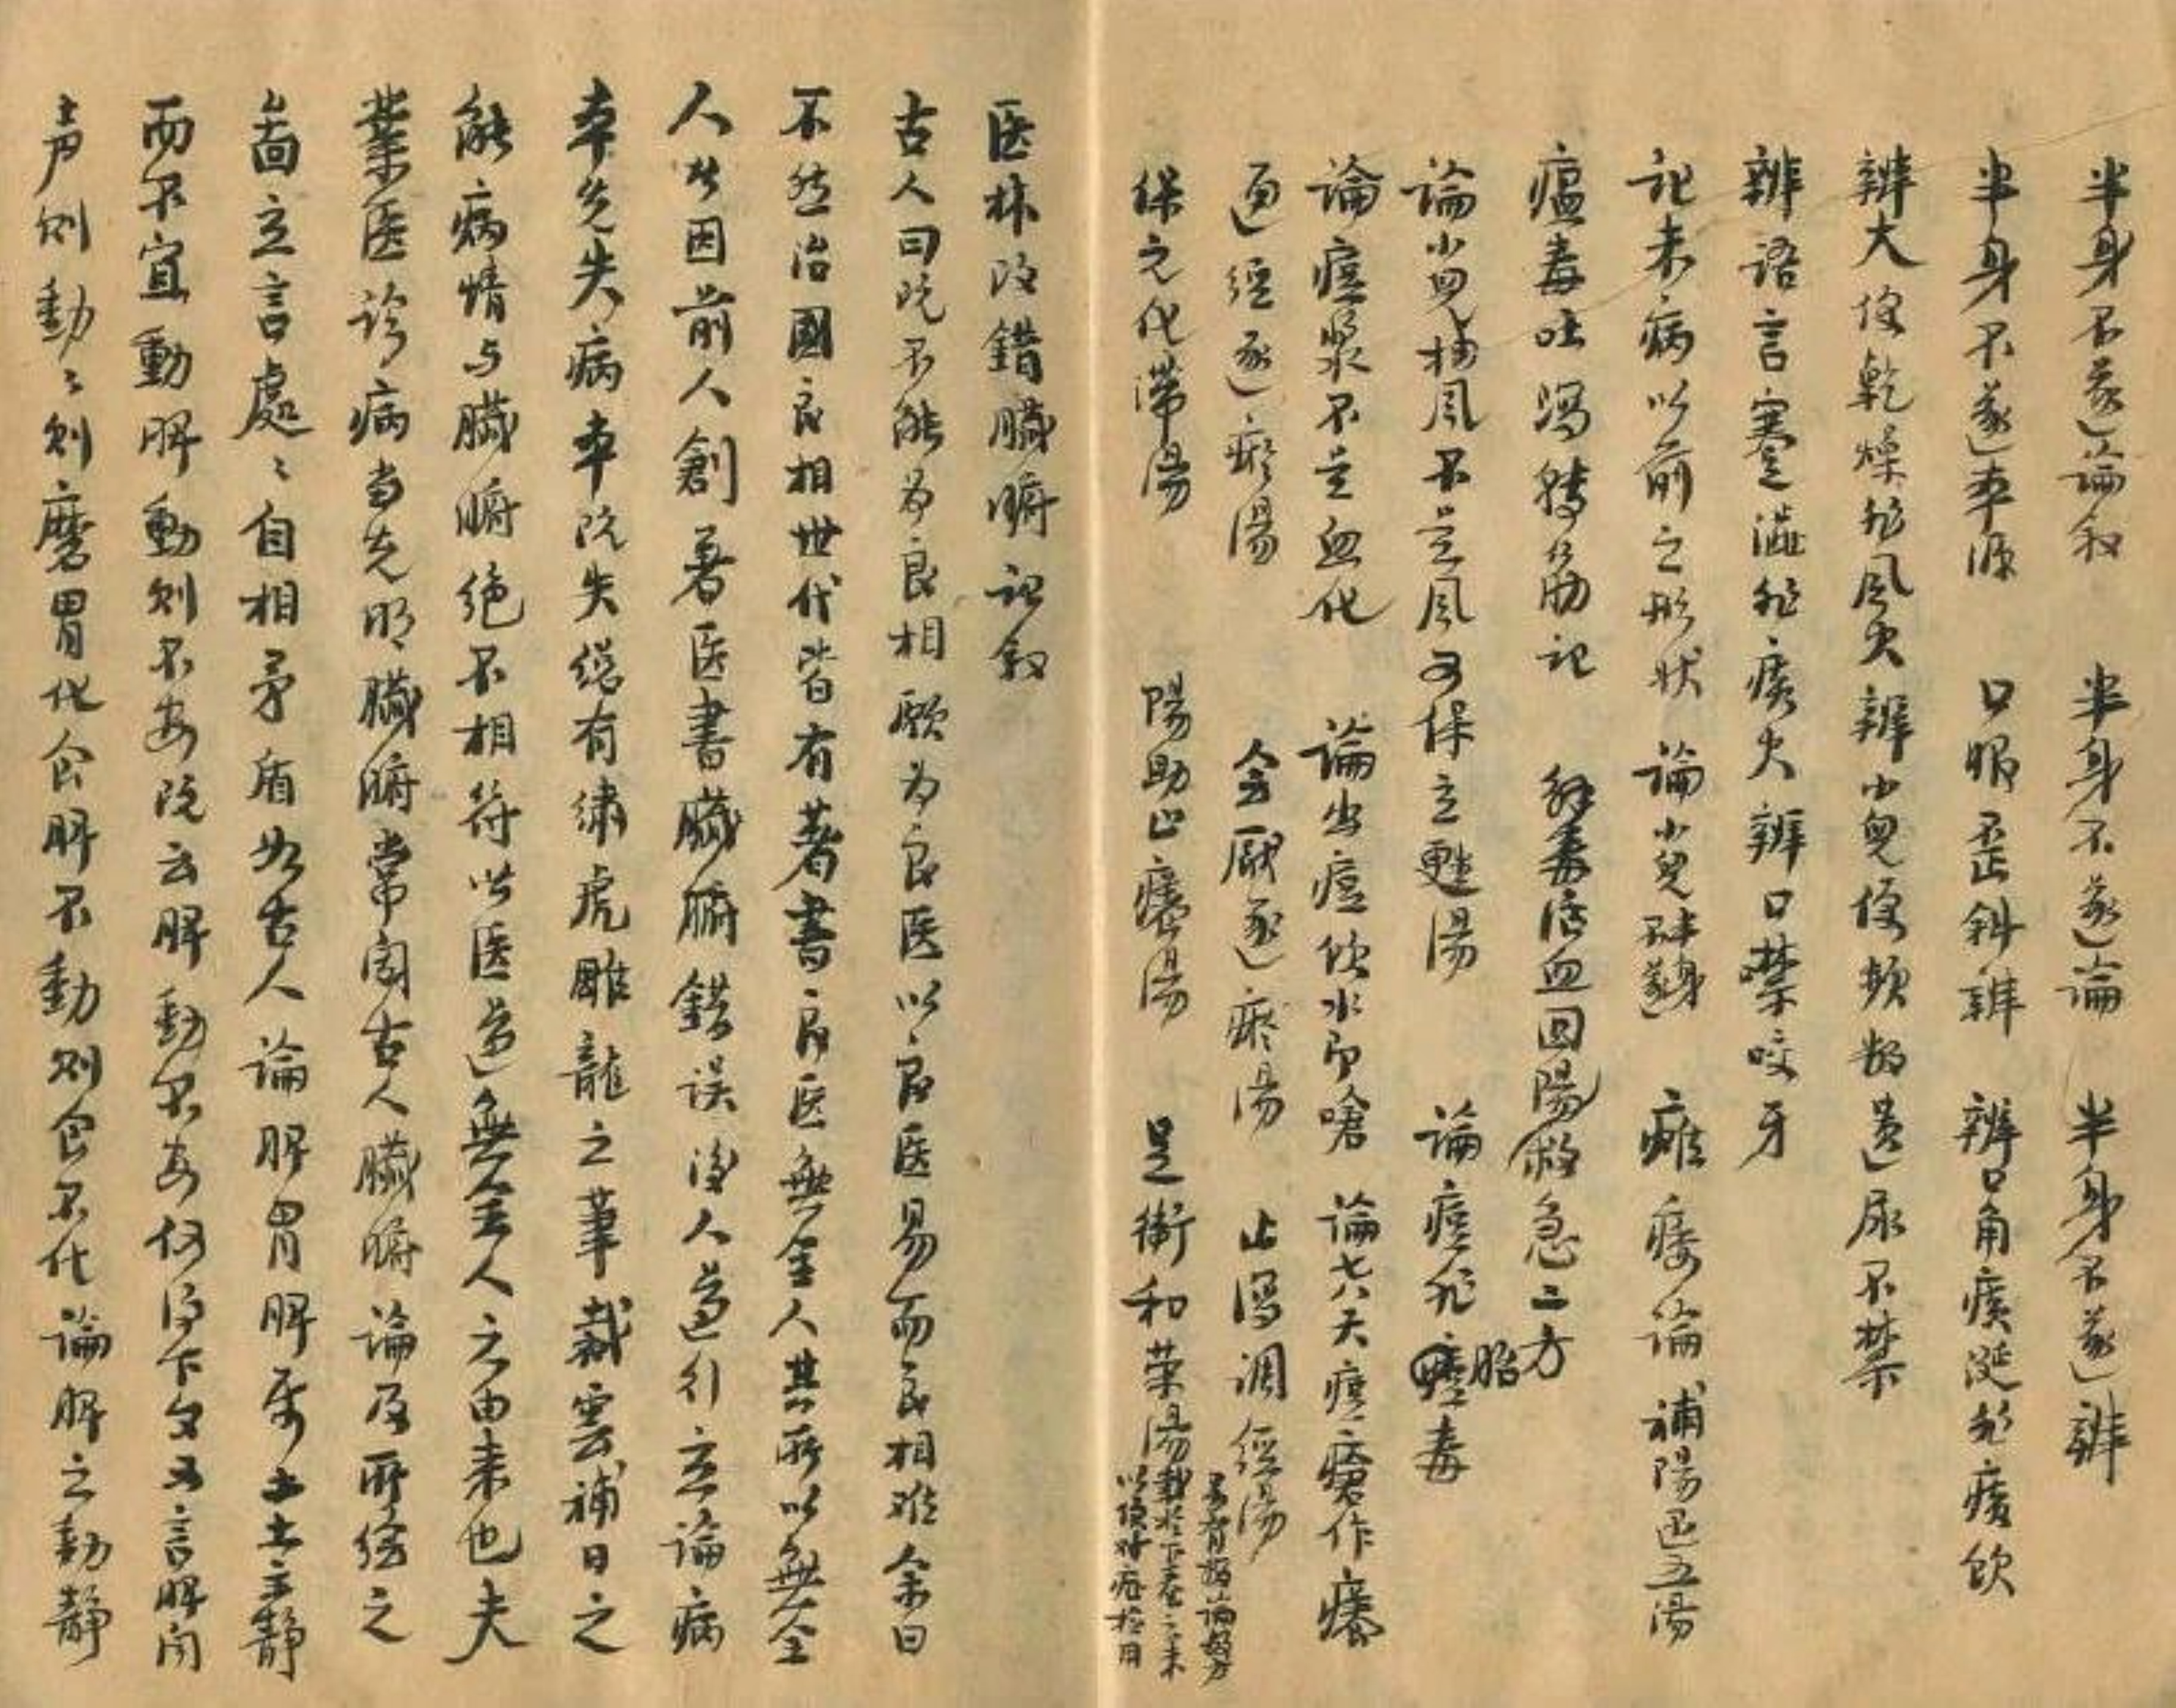 半身不遂論叙 半身不遂論 半身不遂辨
半身不遂本源 口眼歪斜辨 辨口角痰涎非痰飲
辨大便乾燥非風火 辨小兒便頻数遺尿不禁
辨語言蹇澁非痰火 辨口噤咬牙
記未病以前之形状 論小兒半身不遂 癱痿論 補陽还五湯
瘟毒吐瀉轉筋記 解毒活血回陽救急二方
論小兒抽風不是風 可保立甦湯 論痘非胎毒
論痘漿不是血化 論出痘飲水即嗆 論七八天痘瘡作癢
通經逐瘀湯 会厭逐瘀湯 止瀉調經湯
保元化滯湯 陽助止癢湯 是衛和荣湯
医林改錯臓腑記叙
古人曰既不能为良相願为良医以良医易而良相难余曰
不然治國良相世代皆有著書良医無全人其所以無全
人者因前人創著医書臓腑錯误後人遵行立論病
本先失病本既失縂有绣虎雕龍之筆裁雲補日之
能病情与臓腑绝不相符此医道無全人之由来也夫
業医诊病当先明臓腑常阅古人臓腑論及所绘之
啚立言處〻自相矛盾如古人論脾胃脾属土土主静
而不宜動脾動则不安既云脾動不安何得下文又言脾闻
声则動〻则磨胃化食脾不動则食不化論脾之動静